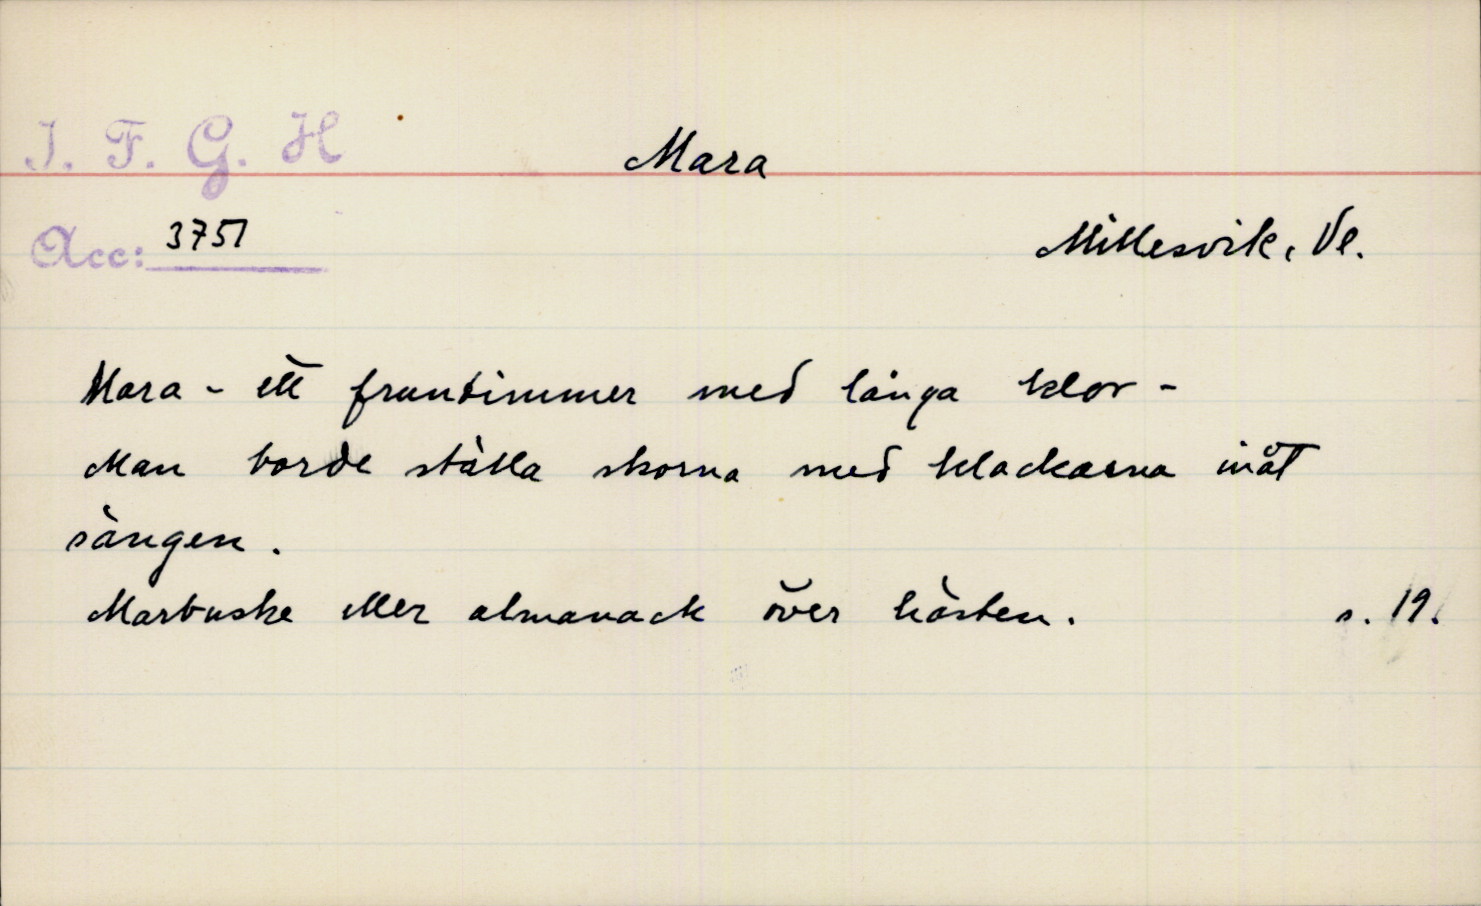 I. F. G. H
Mara
Acc: 3751
Millesvik, Ve.
Mara - ett fruntimmer med långa klor -
Man borde ställa skorna med klackarna inåt
sängen.
Marbuske eller almanack över hästen. s. 19.